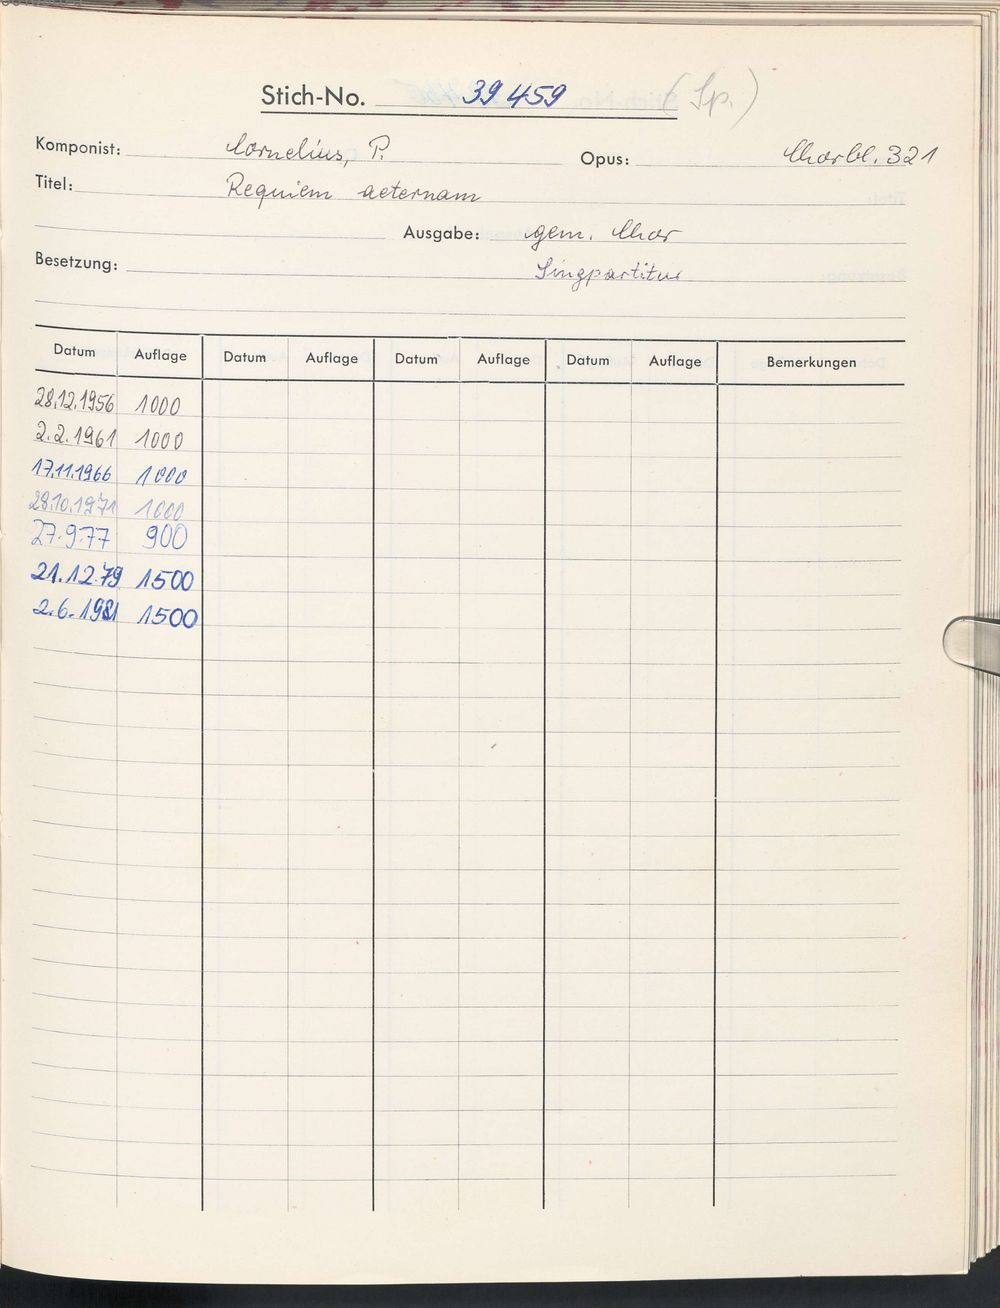 Stich-No. 39 459 (Sp.)
Komponist: Cornelius, P. Opus: Chorbl. 321
Titel: Requiem aeternam
Ausgabe: gem. Chor
Besetzung: Singpartitur
Datum Auflage Datum Auflage Datum Auflage Datum Auflage Bemerkungen
28.12.1956 1000
2.2.1961 1000
17.11.1966 1000
28.10.1971 1000
27.9.77 900
21.12.79 1500
2.6.1981 1500